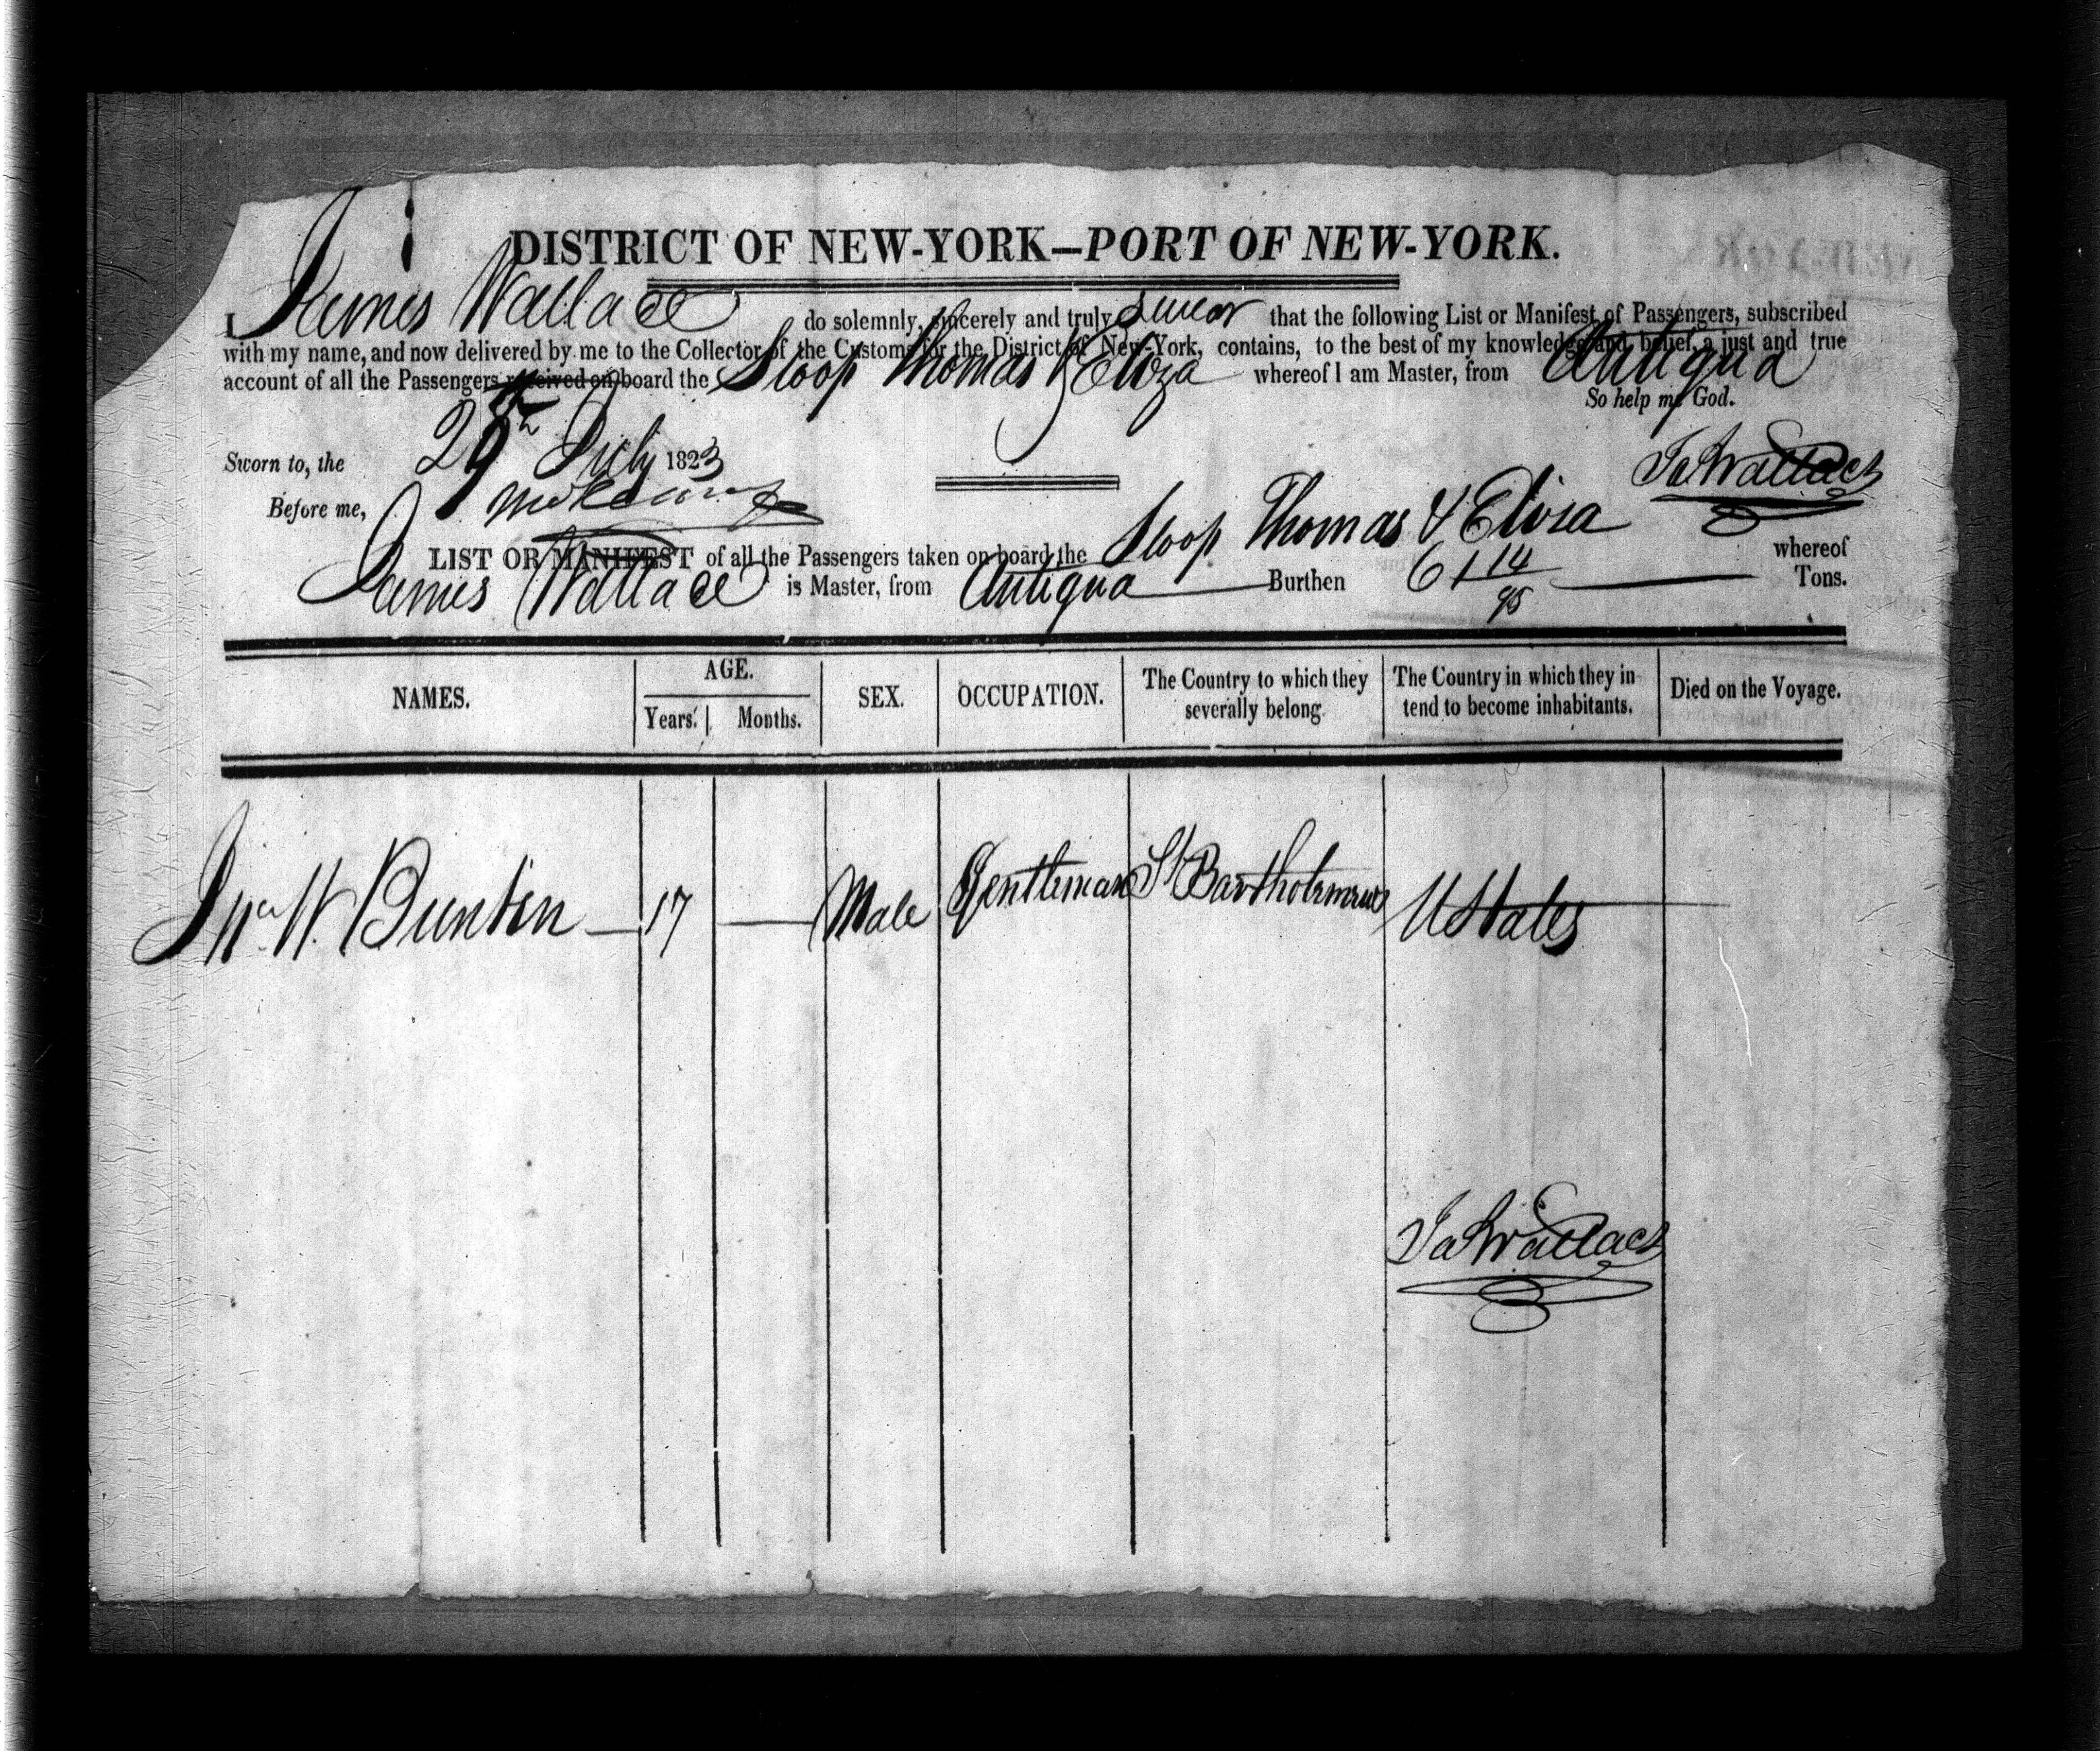 DISTRICT OF NEW-YORK—PORT OF NEW-YORK.
I James Wallace do solemnly, sincerely and truly swear that the following List or Manifest of Passengers, subscribed
with my name, and now delivered by me to the Collector of the Customs for the District of New-York, contains, to the best of my knowledge and belief, a just and true
account of all the Passengers received on board the Sloop Thomas & Eliza whereof I am Master, from Antigua
So help me God.
Sworn to, the 29th July 1823
Jas Wallace
Before me,
LIST OR MANIFEST of all the Passengers taken on board the Sloop Thomas & Eliza whereof
James Wallace is Master, from Antigua Burthen 61 14/95 Tons.
NAMES. AGE. Years. Months. SEX. OCCUPATION. The Country to which they severally belong. The Country in which they intend to become inhabitants. Died on the Voyage.
Jno W. Buntin — 17 — Male Gentleman St Bartholemews UStates
Jas Wallace